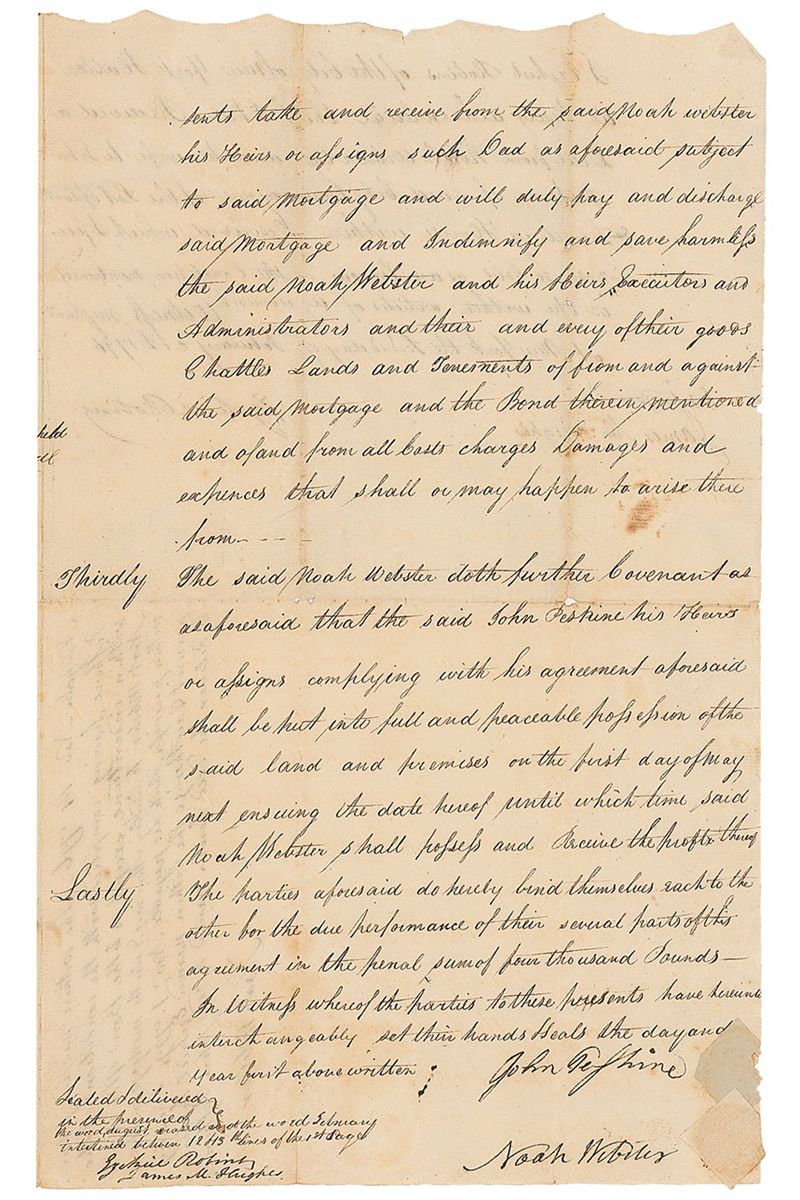 sents take and receive from the said Noah Webster
his Heirs or assigns such Dad as aforesaid subject
to said Mortgage and will duly pay and discharge
said Mortgage and Indemnify and save harmless
the said Noah Webster and his Heirs Executors and
Administrators and their and every of their goods
Chattles Lands and Tenements of from and against
the said Mortgage and the Bond therein mentioned
and of and from all Costs charges Damages and
expences that shall or may happen to arise there
from - - -
Thirdly The said Noah Webster doth further Covenant as
as aforesaid that the said John Peshine his Heirs
or assigns complying with his agreement aforesaid
shall be put into full and peaceable possession of the
said land and premises on the first day of May
next ensuing the date hereof until which time said
Noah Webster shall possess and Receive the profits thereof
Lastly The parties aforesaid do hereby bind themselves each to the
other for the due performance of their several parts of this
agreement in the penal sum of four thousand Pounds —
In Witness whereof the parties to these presents have hereunto
interchangeably set their hands & seals the day and
year first above written
John Peshine
Sealed & delivered
in the presence of
the word august and the word February
interlined between 12 & 13 lines of the 1st Page
James M. Hughes.
Noah Webster